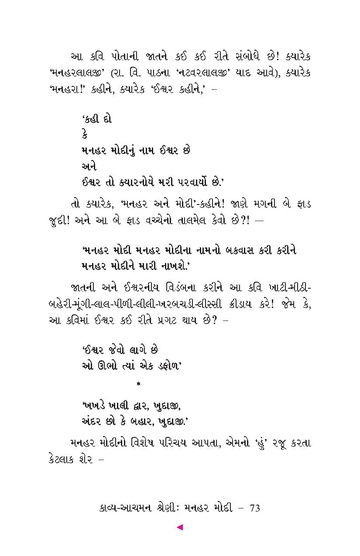 આ કવિ પોતાની જાતને કઈ કઈ રીતે સંબોધે છે! ક્યારેક
'મનહરલાલજી' (રા. વિ. પાઠના 'નટવરલાલજી' યાદ આવે), ક્યારેક
'મનહરા!' કહીને, ક્યારેક 'ઈશ્વર કહીને,' –
'કહી દો
કે
મનહર મોદીનું નામ ઈશ્વર છે
અને
ઈશ્વર તો ક્યારનોયે મરી પરવાર્યો છે.'
તો ક્યારેક, 'મનહર અને મોદી'-કહીને! જાણે મગની બે ફાડ
જુદી! અને આ બે ફાડ વચ્ચેનો તાલમેલ કેવો છે?! —
'મનહર મોદી મનહર મોદીના નામનો બકવાસ કરી કરીને
મનહર મોદીને મારી નાખશે.'
જાતની અને ઈશ્વરનીય વિડંબના કરીને આ કવિ ખાટી-મીઠી-
બહેરી-મૂંગી-લાલ-પીળી-લીલી-ખરબચડી-લીસ્સી ક્રીડાય કરે! જેમ કે,
આ કવિમાં ઈશ્વર કઈ રીતે પ્રગટ થાય છે? –
'ઈશ્વર જેવો લાગે છે
ઓ ઊભો ત્યાં એક ડફોળ'
*
'ખખડે ખાલી દ્વાર, ખુદાજી,
અંદર છો કે બહાર, ખુદાજી.'
મનહર મોદીનો વિશેષ પરિચય આપતા, એમનો 'હું' રજૂ કરતા
કેટલાક શેર –
કાવ્ય-આચમન શ્રેણી: મનહર મોદી – 73